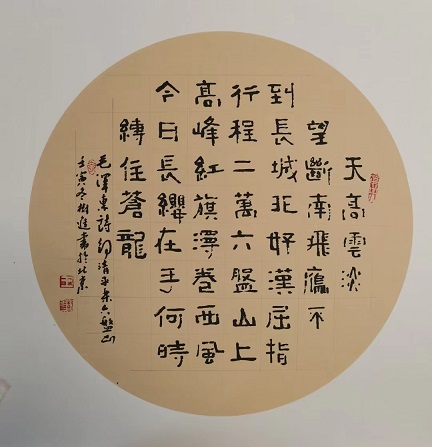 天高雲淡
望斷南飛鴈不
到長城非好漢屈指
行程二萬六盤山上
高峰紅旗漫卷西風
今日長纓在手何時
縛住蒼龍
毛澤東詩詞清平乐六盤山
壬寅冬樹進書於北京